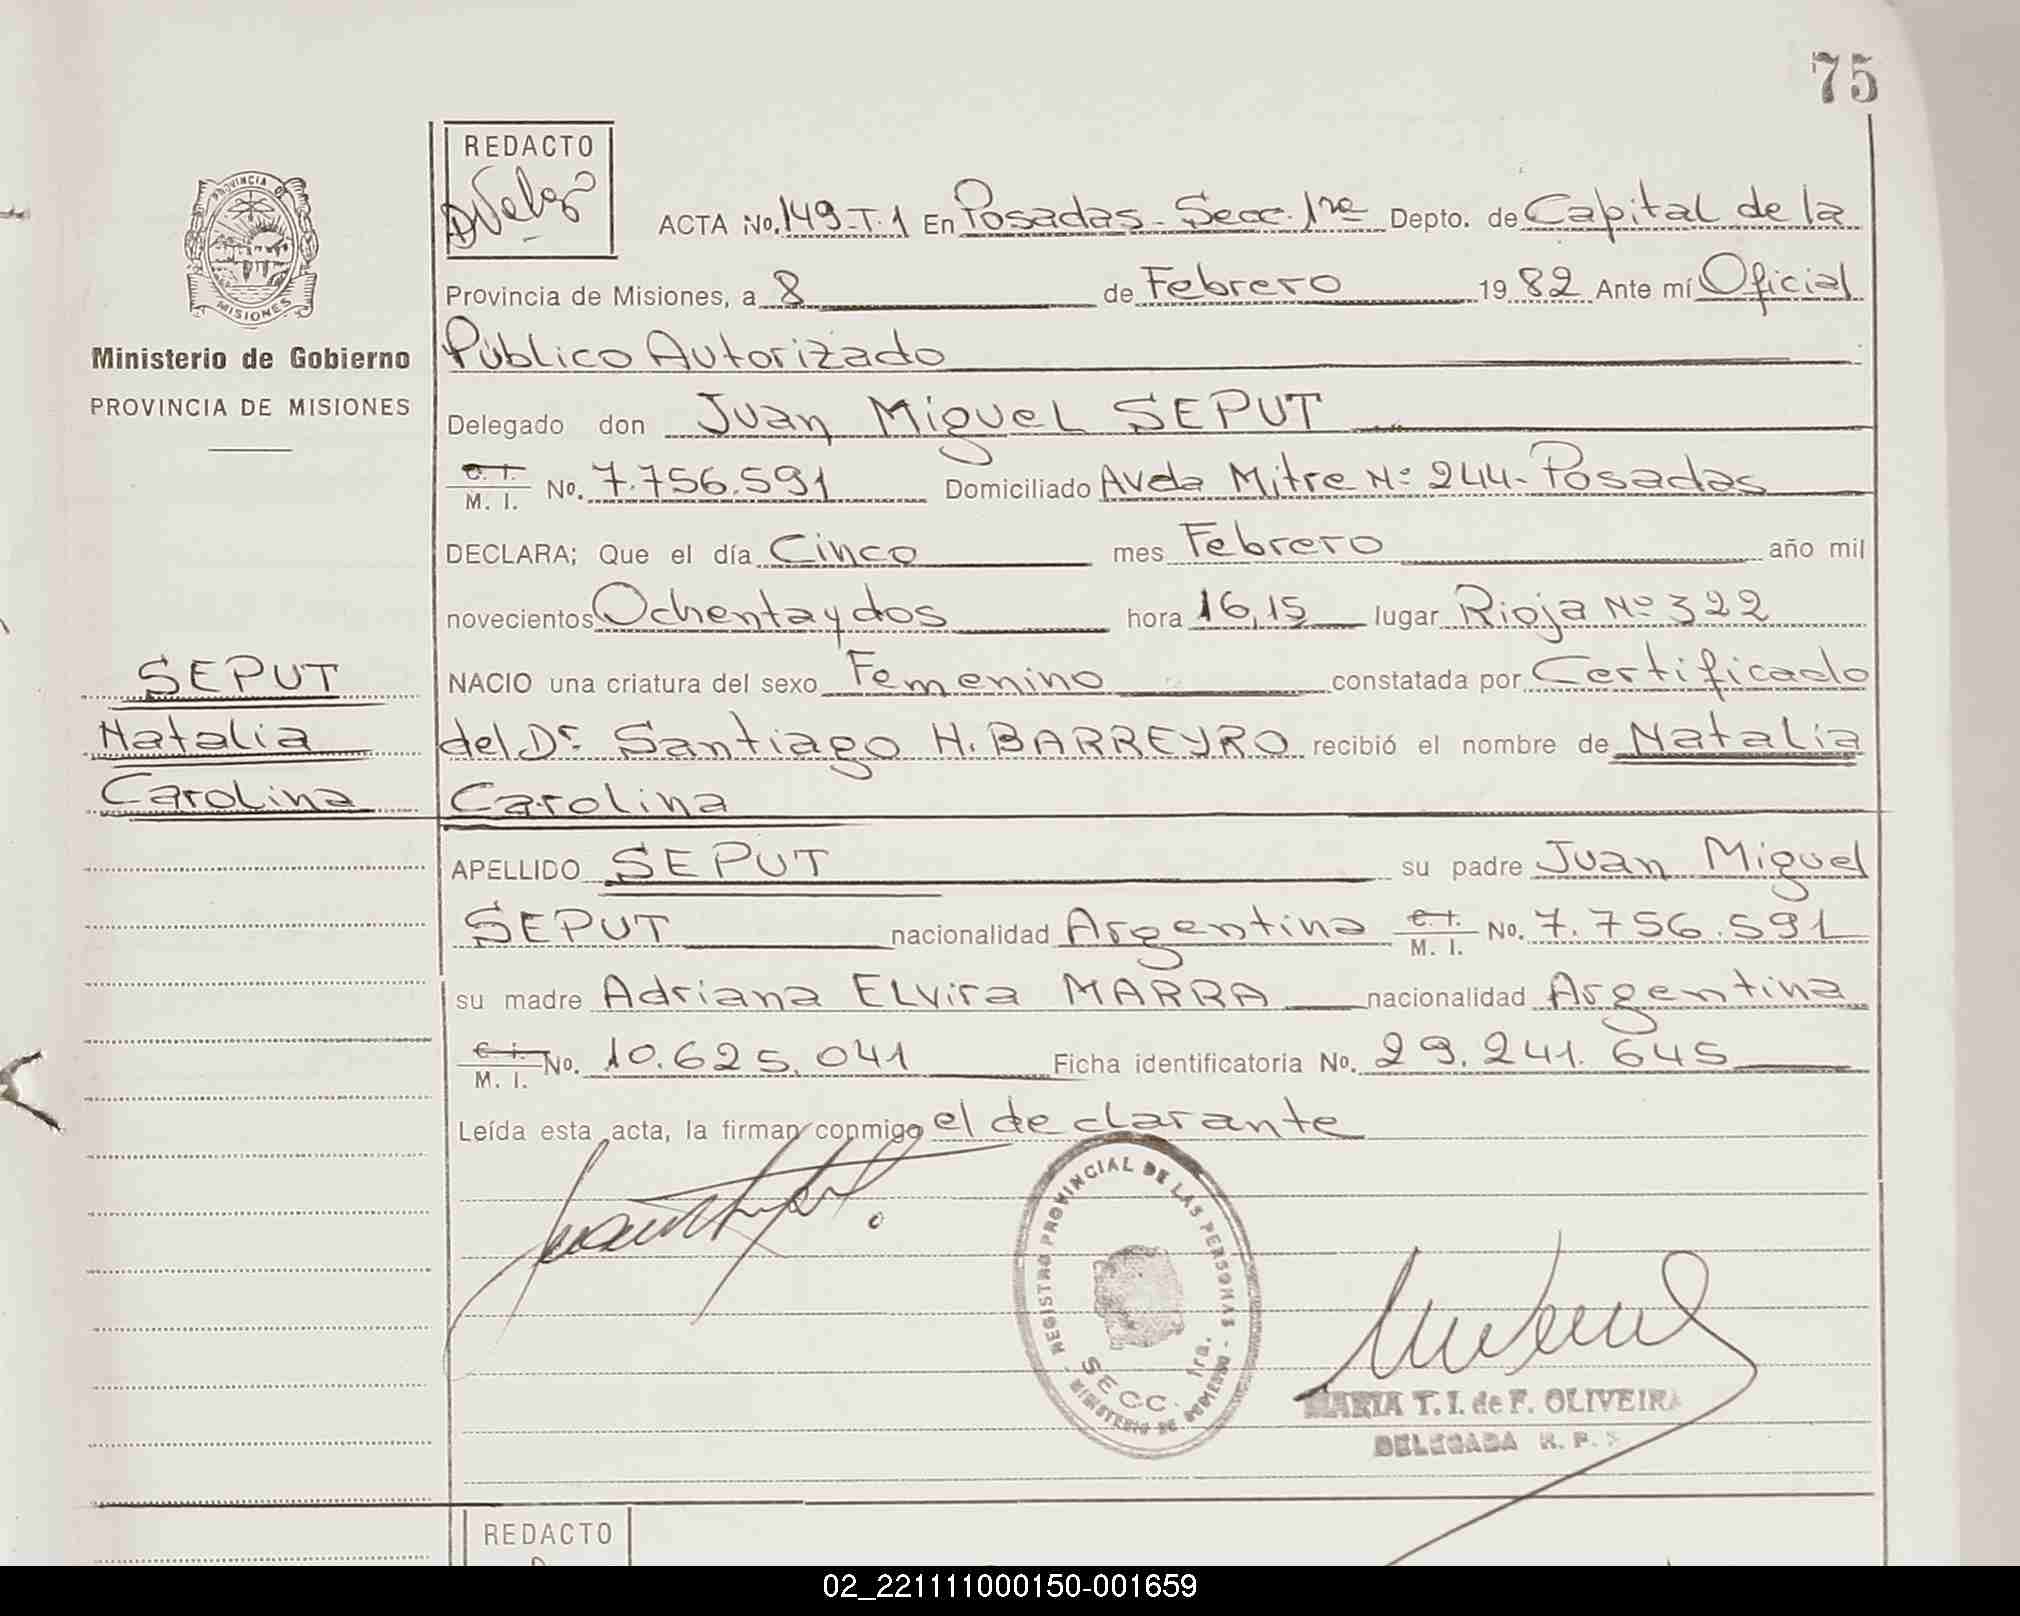 75
REDACTO
PROVINCIA DE
MISIONES
Ministerio de Gobierno
PROVINCIA DE MISIONES
ACTA No. 149-T.1 En Posadas - Secc. 1ra Depto. de Capital de la
Provincia de Misiones, a 8 de Febrero 1982 Ante mí Oficial
Público Autorizado
Delegado don Juan Miguel SEPUT
C. I. / M. I. No. 7.756.591 Domiciliado Avda Mitre Nº 244 - Posadas
DECLARA; Que el día Cinco mes Febrero año mil
novecientos Ochenta y dos hora 16,15 lugar Rioja Nº 322
SEPUT
NACIO una criatura del sexo Femenino constatada por Certificado
Natalia
del Dr. Santiago H. BARREYRO recibió el nombre de Natalia
Carolina
Carolina
APELLIDO SEPUT su padre Juan Miguel
SEPUT nacionalidad Argentina C. I. / M. I. No. 7.756.591
su madre Adriana ELvira MARRA nacionalidad Argentina
C. I. / M. I. No. 10.625.041 Ficha identificatoria No. 29.241.645
Leída esta acta, la firman conmigo el declarante
REGISTRO PROVINCIAL DE LAS PERSONAS
SECC. 1ra.
MINISTERIO DE GOBIERNO
MARIA T. I. de F. OLIVEIRA
DELEGADA R. P.
REDACTO
02_221111000150-001659